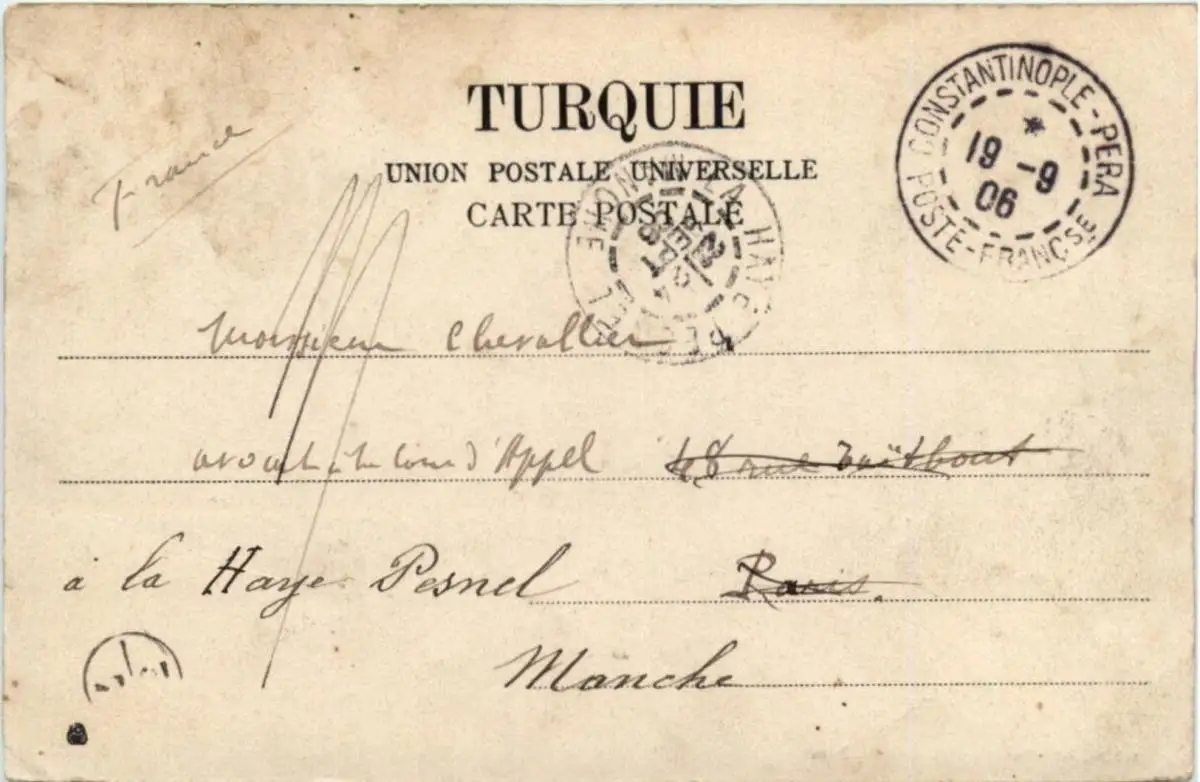 TURQUIE
UNION POSTALE UNIVERSELLE
CARTE POSTALE
France
CONSTANTINOPLE-PERA
19 -9
06
POSTE-FRANCSE
LA HAYE PE
Monsieur Chevallier
avoué à la Cour d'Appel 48 rue Taitbout
à la Haye Pesnel Paris.
Manche